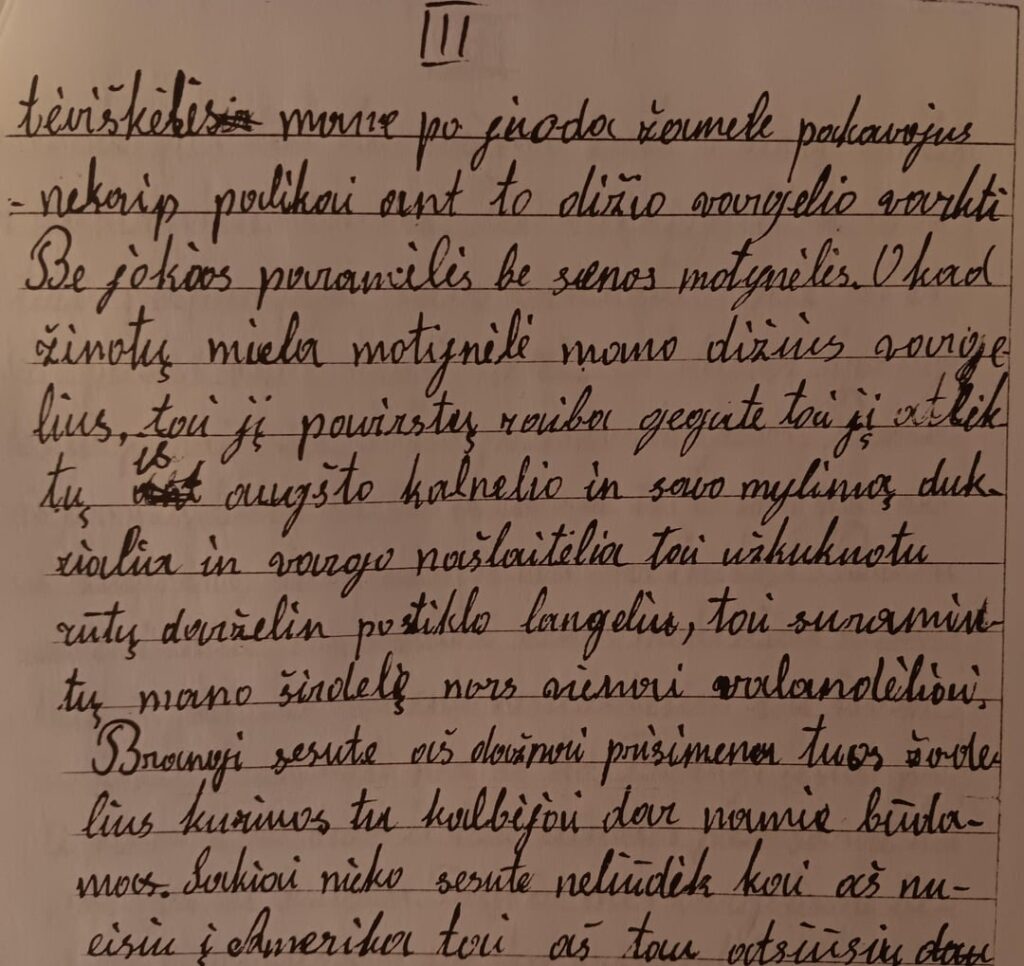 III
tėviškėlės mane po juoda žamele pakavojus
- nekaip palikai ant to dižio vargelio varkti
Be jokios paramėlės be sænos motynėlės. O kad
žinotų miela motynėlė mano dižius varge
lius, tai jį pavirstų raiba gegute tai jį atlėk
tų is augšto kalnelio in savo mylimą duk-
rialia in vargo našlaitėlia tai užkukuotu
rūtų darželin po stiklo langeliu, tai suramin-
tų mano širdelę nors vienai valandėliai.
Brangi sesute aš dažnai prisimena tuos žode
lius kuriuos tu kalbėjai dar namie būda-
mas. Sakiai nieko sesute neliūdėk kai aš nu-
eisiu į Amerika tai aš tau atsiūsiu dau